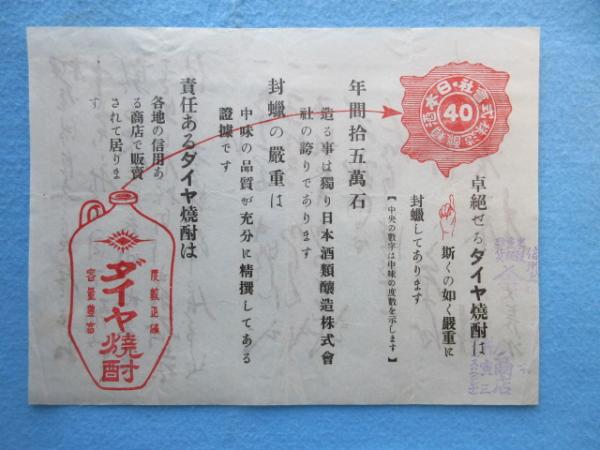 株式會社・日本酒類釀造
40
卓絶せるダイヤ燒酎は
斯くの如く嚴重に
封蠟してあります
【中央の數字は中味の度數を示します】
年間拾五萬石
造る事は獨り日本酒類釀造株式會
社の誇りであります
封蠟の嚴重は
中味の品質が充分に精撰してある
證據です
責任あるダイヤ燒酎は
各地の信用あ
る商店で販賣
されて居りま
す
度數正確
ダイヤ燒酎
容量豊富